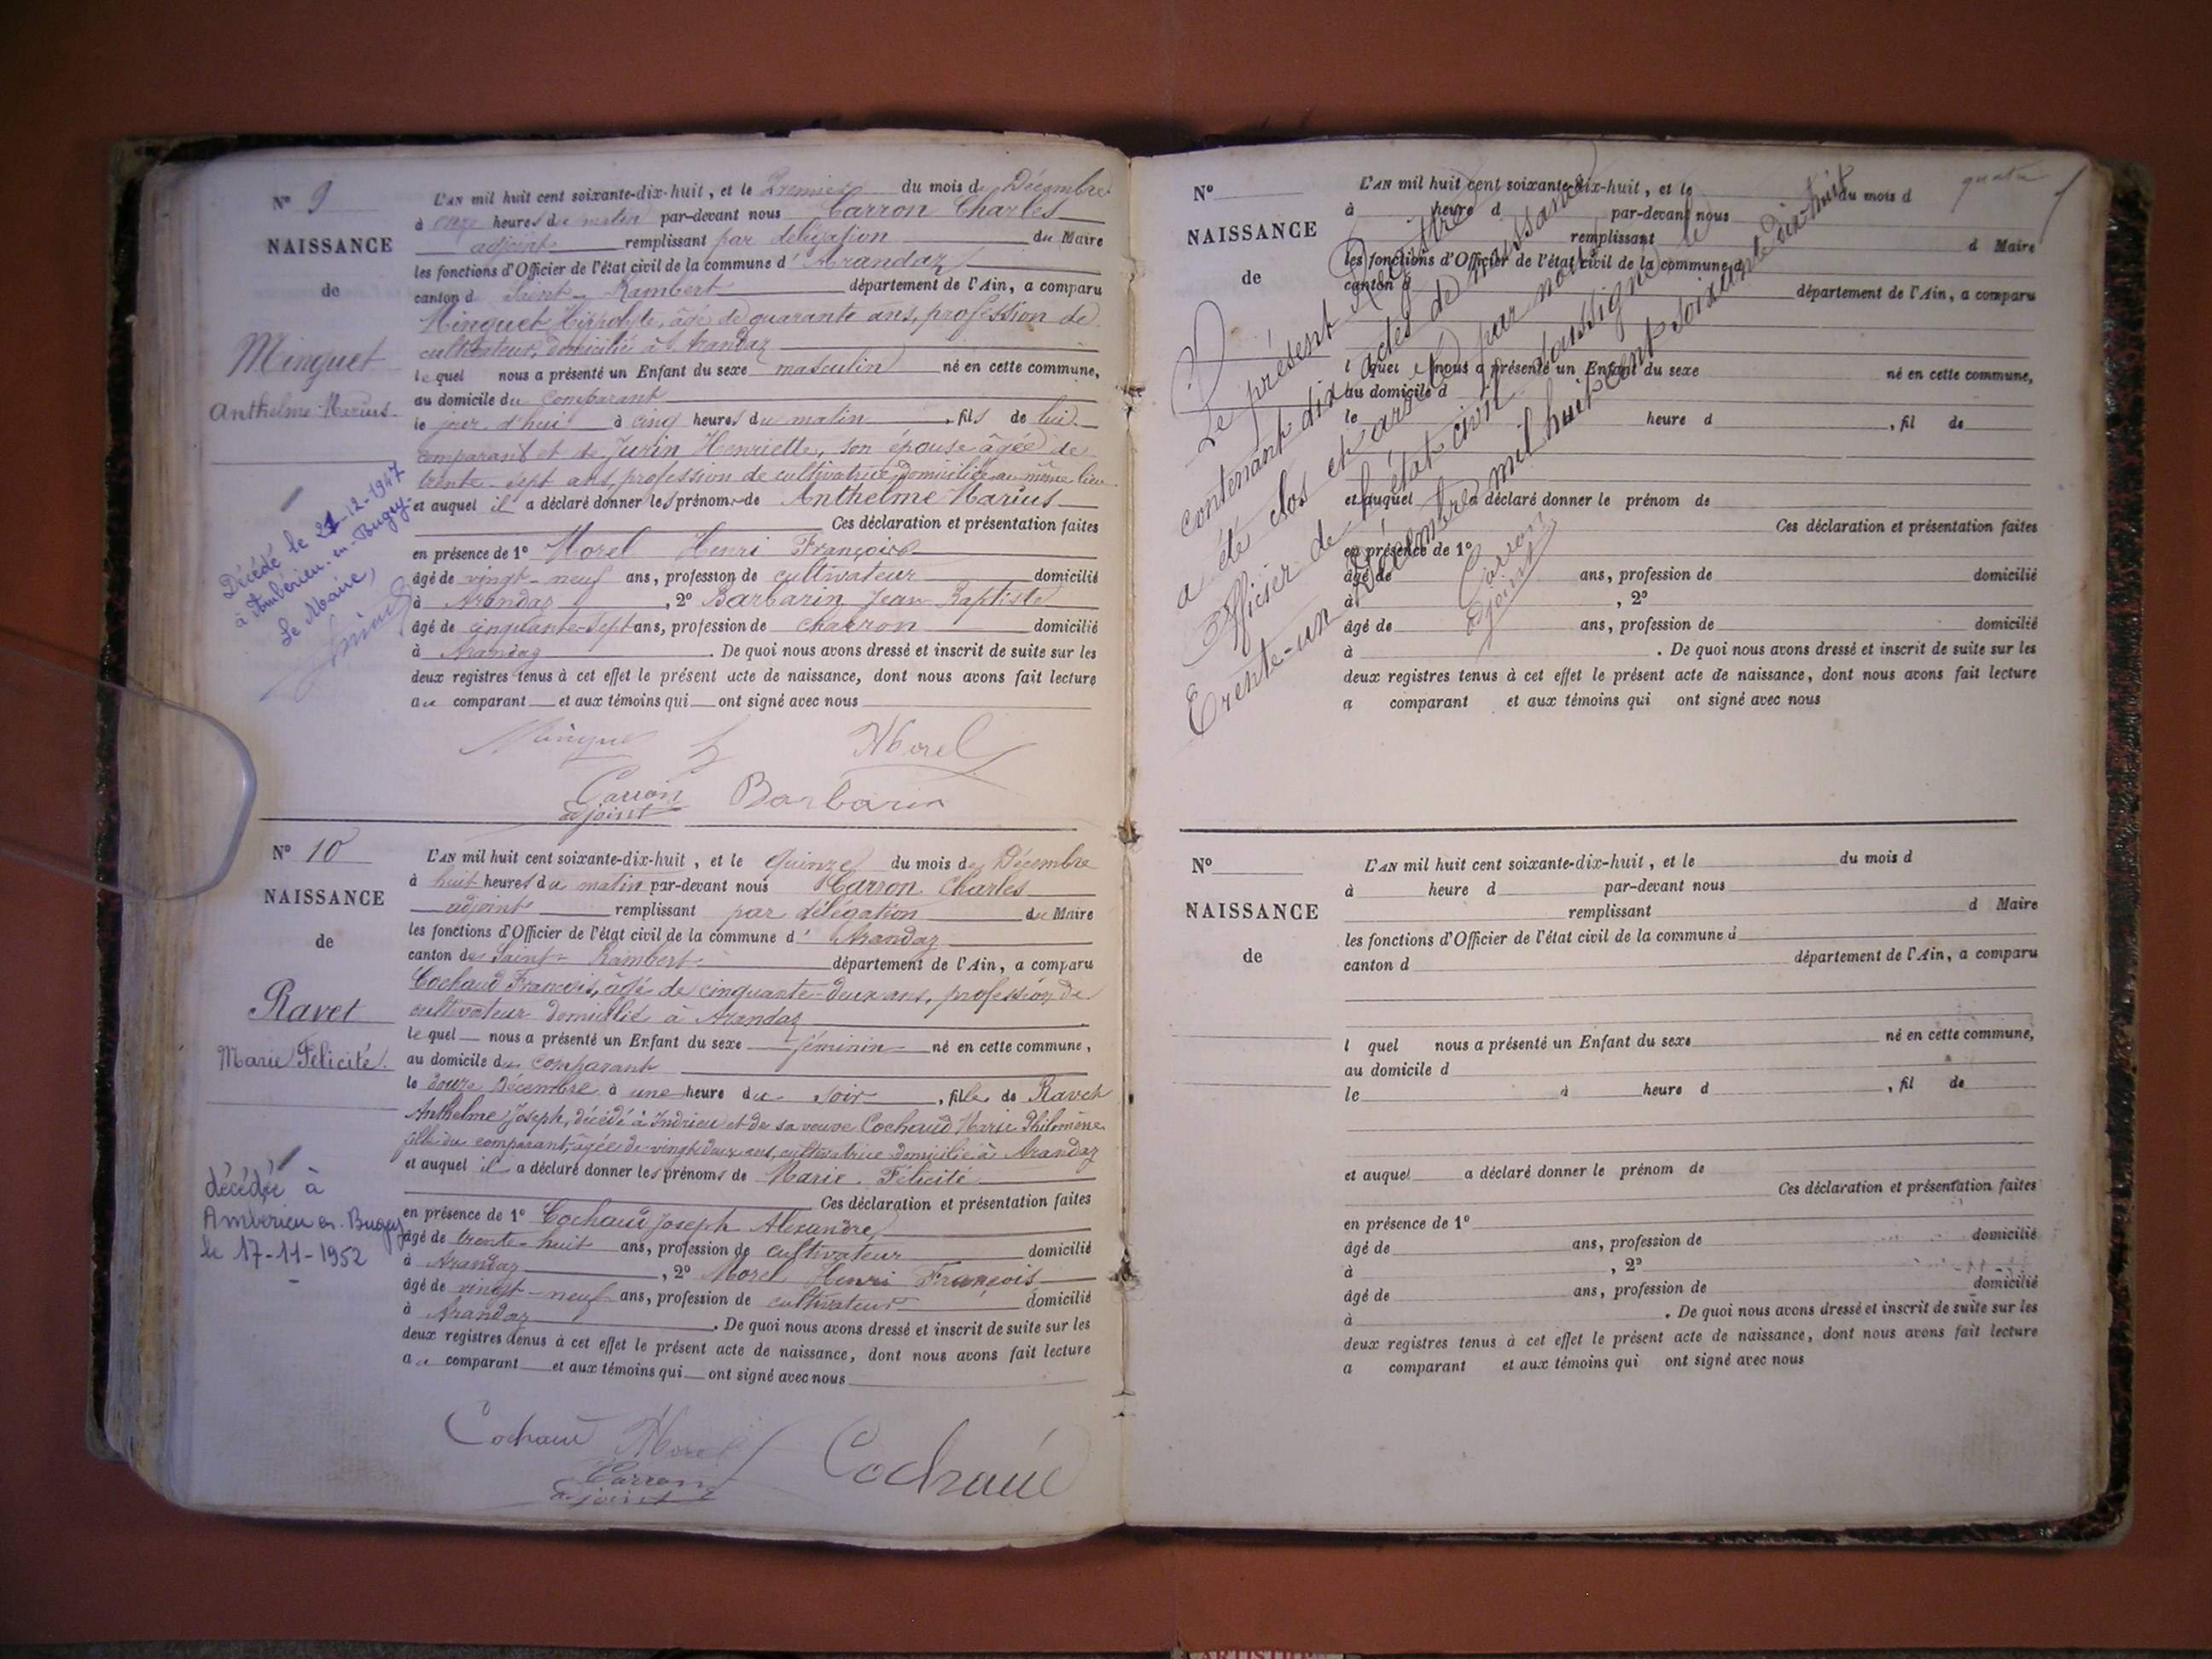 N° 9
NAISSANCE
de
Minguet
Anthelme Marius.
Décédé le 21-12-1947
à Ambérieu-en-Bugey.
Le Maire,
L'AN mil huit cent soixante-dix-huit, et le Premier du mois de Décembre
à onze heures du matin par-devant nous Carron Charles
adjoint remplissant par délégation du Maire
les fonctions d'Officier de l'état civil de la commune d'Arandaz
canton de Saint-Rambert département de l'Ain, a comparu
Minguet Hippolyte, âgé de quarante ans, profession de
cultivateur, domicilié à Arandaz
lequel nous a présenté un Enfant du sexe masculin né en cette commune,
au domicile du comparant
le jour d'hui à cinq heures du matin, fils de lui
comparant et de Juvin Henriette, son épouse âgée de
trente-sept ans, profession de cultivatrice domiciliée au même lieu
et auquel il a déclaré donner les prénoms de Anthelme Marius
Ces déclaration et présentation faites
en présence de 1° Morel Henri François
âgé de vingt-neuf ans, profession de cultivateur domicilié
à Arandaz, 2° Barbarin Jean Baptiste
âgé de cinquante-sept ans, profession de charron domicilié
à Arandaz. De quoi nous avons dressé et inscrit de suite sur les
deux registres tenus à cet effet le présent acte de naissance, dont nous avons fait lecture
au comparant et aux témoins qui ont signé avec nous
Minguet H Morel
Carron Barbarin
adjoint
N° 10
NAISSANCE
de
Ravet
Marie Félicité.
décédée à
Ambérieu en-Bugey
le 17-11-1952
L'AN mil huit cent soixante-dix-huit, et le quinze du mois de Décembre
à huit heures du matin par-devant nous Carron Charles
adjoint remplissant par délégation du Maire
les fonctions d'Officier de l'état civil de la commune d'Arandaz
canton de Saint-Rambert département de l'Ain, a comparu
Cochaud François, âgé de cinquante-deux ans, profession de
cultivateur domicilié à Arandaz
lequel nous a présenté un Enfant du sexe féminin né en cette commune,
au domicile du comparant
le douze Décembre à une heure du soir, fille de Ravet
Anthelme Joseph, décédé à Indrieu et de sa veuve Cochaud Marie Philomène
fille du comparant, âgée de vingt deux ans, cultivatrice domiciliée à Arandaz
et auquel il a déclaré donner les prénoms de Marie Félicité
Ces déclaration et présentation faites
en présence de 1° Cochaud Joseph Alexandre
âgé de trente-huit ans, profession de cultivateur domicilié
à Arandaz, 2° Morel Henri François
âgé de vingt-neuf ans, profession de cultivateur domicilié
à Arandaz. De quoi nous avons dressé et inscrit de suite sur les
deux registres tenus à cet effet le présent acte de naissance, dont nous avons fait lecture
au comparant et aux témoins qui ont signé avec nous
Cochaud Morel Cochaud
Carron
adjoint
quatre
N°
NAISSANCE
de
L'AN mil huit cent soixante-dix-huit, et le du mois d
à heure d par-devant nous
remplissant d Maire
les fonctions d'Officier de l'état civil de la commune d
canton d département de l'Ain, a comparu
l quel nous a présenté un Enfant du sexe né en cette commune,
au domicile d
le heure d , fil de
et auquel a déclaré donner le prénom de
Ces déclaration et présentation faites
en présence de 1°
âgé de ans, profession de domicilié
à , 2°
âgé de ans, profession de domicilié
à . De quoi nous avons dressé et inscrit de suite sur les
deux registres tenus à cet effet le présent acte de naissance, dont nous avons fait lecture
a comparant et aux témoins qui ont signé avec nous
Le présent Registre
contenant dix actes de naissance
a été clos et arrêté par nous
Officier de l'état civil soussigné le
Trente-un Décembre mil huit cent soixante dix-huit
Carron
adjoint
N°
NAISSANCE
de
L'AN mil huit cent soixante-dix-huit, et le du mois d
à heure d par-devant nous
remplissant d Maire
les fonctions d'Officier de l'état civil de la commune d
canton d département de l'Ain, a comparu
l quel nous a présenté un Enfant du sexe né en cette commune,
au domicile d
le à heure d , fil de
et auquel a déclaré donner le prénom de
Ces déclaration et présentation faites
en présence de 1°
âgé de ans, profession de domicilié
à , 2°
âgé de ans, profession de domicilié
à . De quoi nous avons dressé et inscrit de suite sur les
deux registres tenus à cet effet le présent acte de naissance, dont nous avons fait lecture
a comparant et aux témoins qui ont signé avec nous